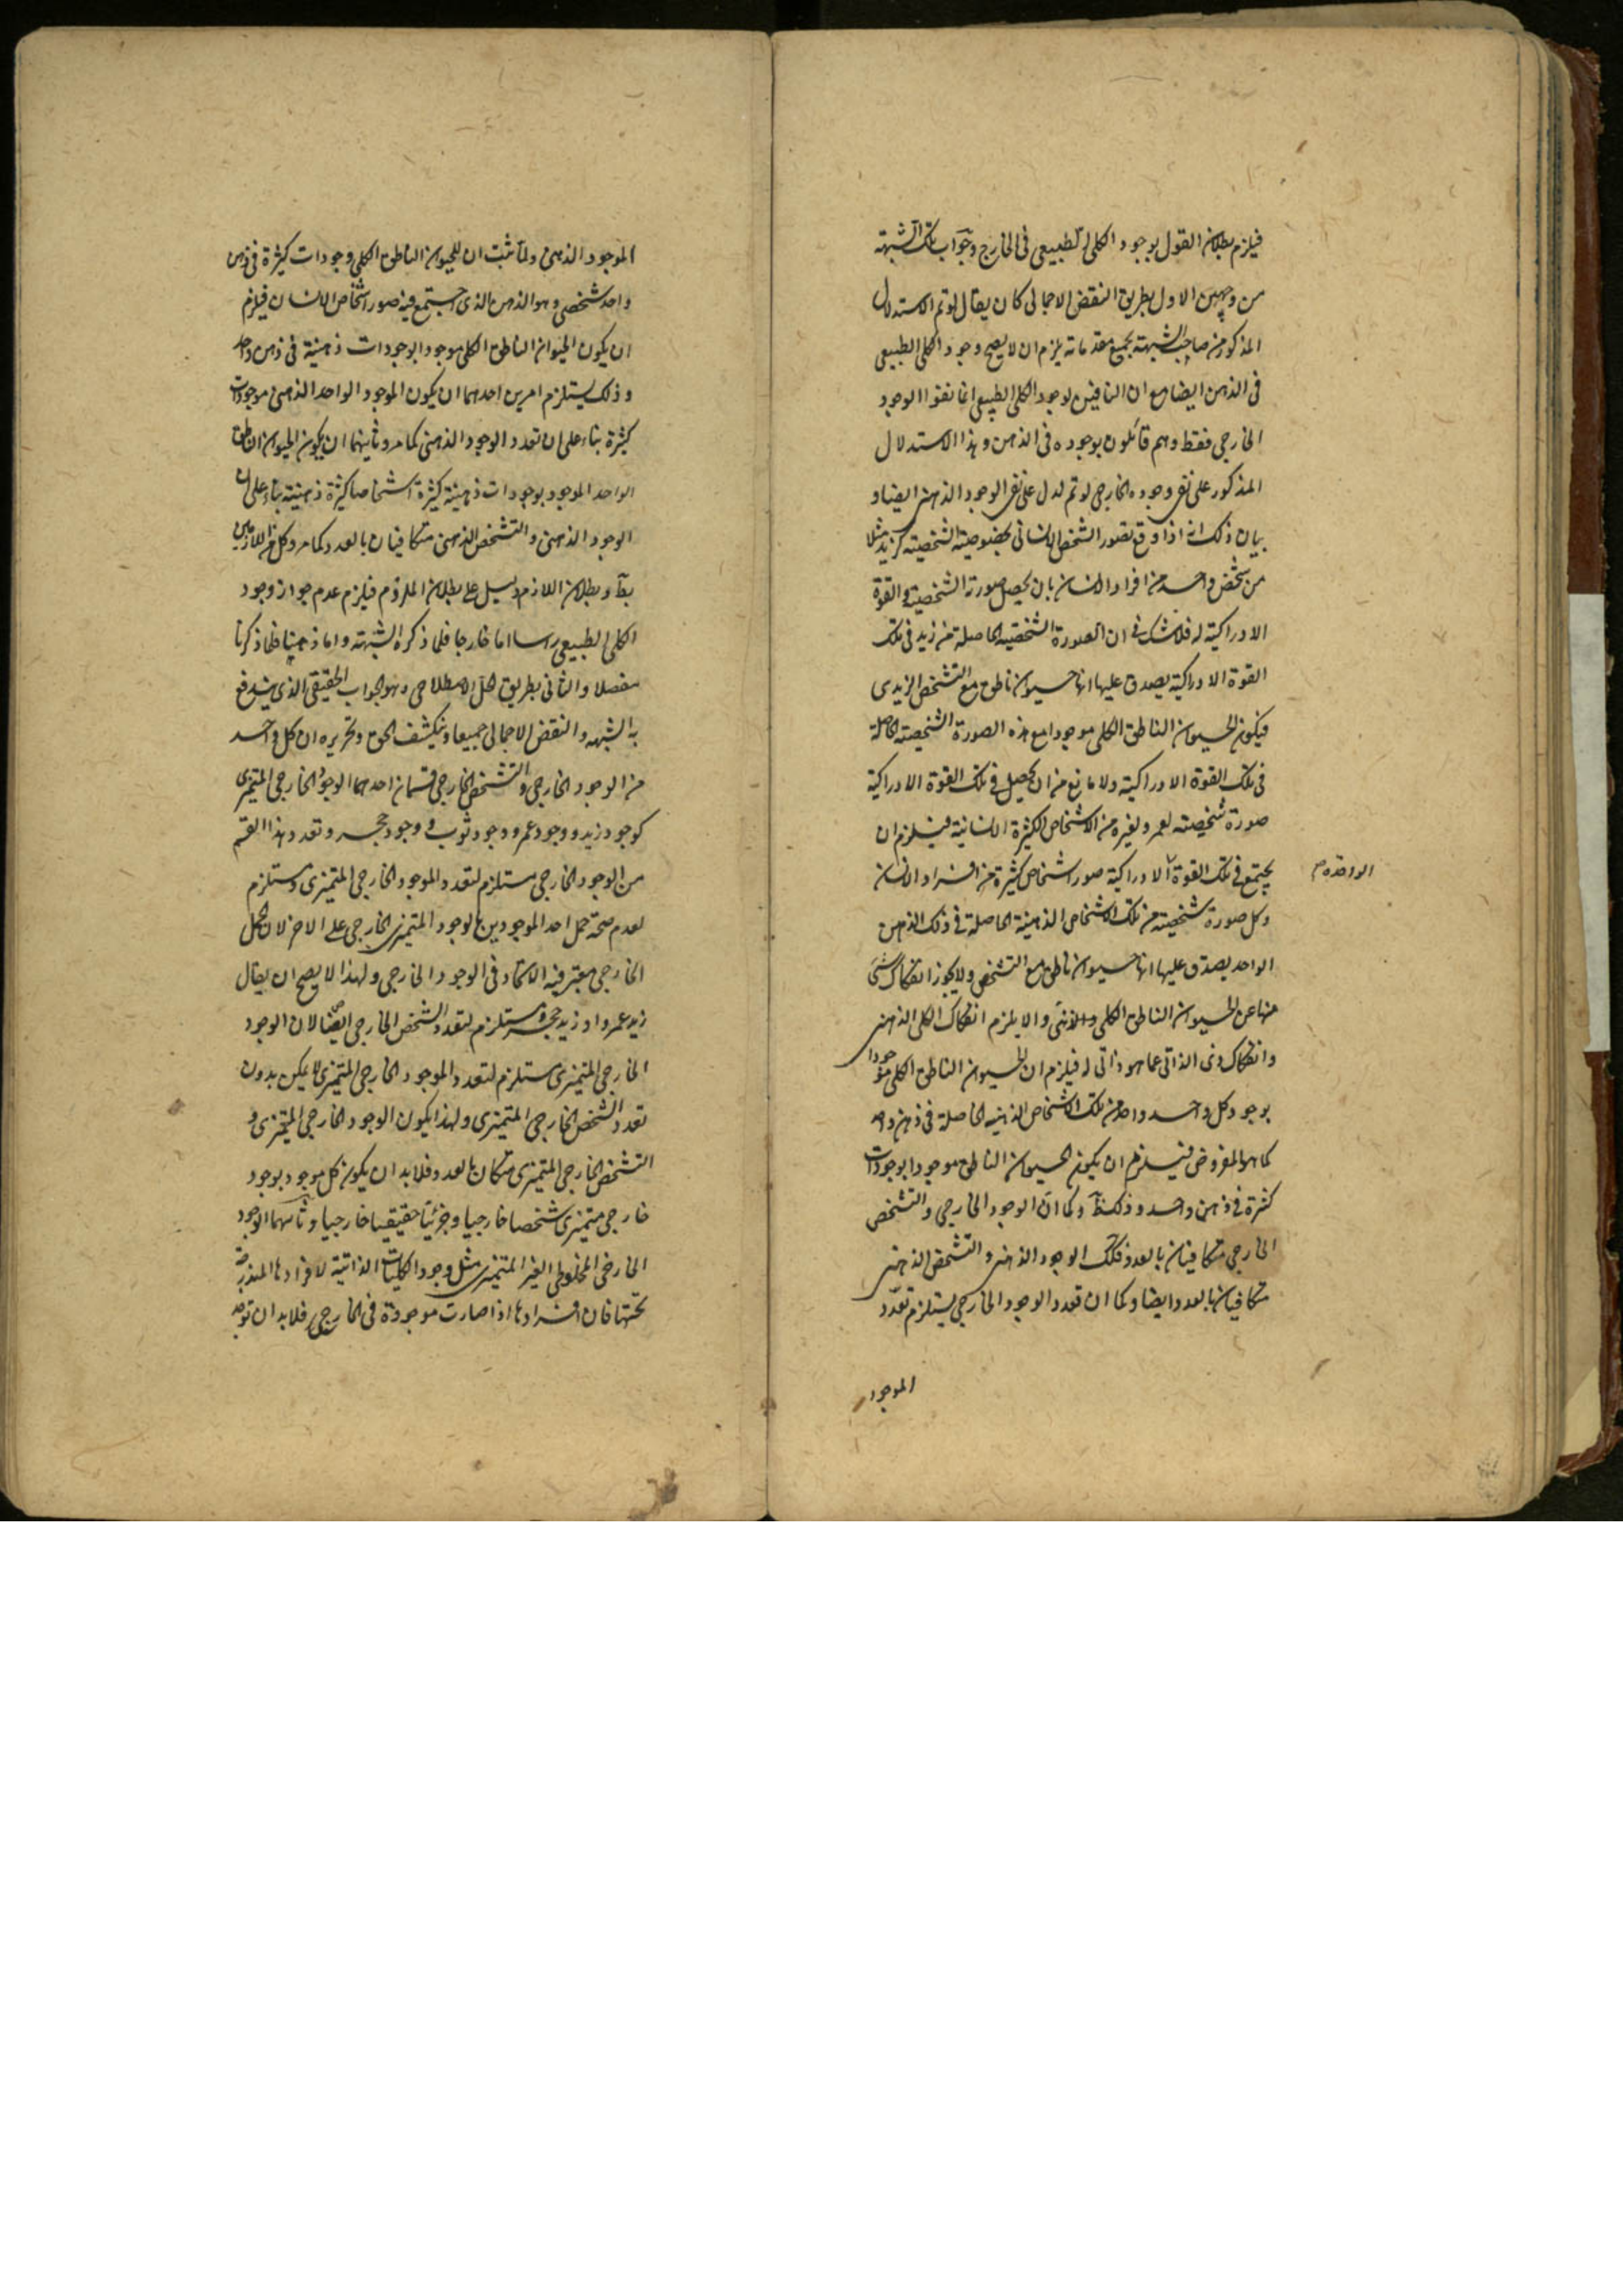 فيلزم بطلان القول بوجود الكلى الطبيعى فى الخارج وجواب تلك الشبهة
من وجهين الاول بطريق النقض الاجمالى كان يقال لو تم الاستدلال
المذكور من صاحب الشبهة بجميع مقدماته يلزم ان لا يصح وجود الكلى الطبيعى
فى الذهن ايضا مع ان النافين لوجود الكلى الطبيعى انما نفوا الوجود
الخارجى فقط وهم قائلون بوجوده فى الذهن وهذا الاستدلال
المذكور على نفى وجوده الخارجى لو تم لدل على نفى الوجود الذهنى ايضا و
بيان ذلك انه اذا وقع تصور الشخص الانسانى بخصوصيته الشخصية كزيد مثلا
من شخص واحد من افراد الانسان بان يحصل صورته الشخصية و القوة
الادراكية له فلا شك فى ان الصورة الشخصية الحاصلة من زيد فى تلك
القوة الادراكية يصدق عليها انها حيوان ناطق مع التشخص الزيدى
فيكون الحيوان الناطق الكلى موجودا مع هذه الصورة الشخصية الحاصلة
فى تلك القوة الادراكية ولا مانع من ان يحصل فى تلك القوة الادراكية
صورة شخصية لعمرو لغيره من الاشخاص الكثيرة الانسانية فيلزم ان
يجتمع فى تلك القوة الادراكية صور اشخاص كثيرة من افراد الانسان
الواحدة م
وكل صورة شخصية من تلك الاشخاص الذهنية الحاصلة فى ذلك الذهن
الواحد يصدق عليها انها حيوان ناطق مع التشخص ولا يجوز انفكاك شئ
منها عن الحيوان الناطق الكلى والا يلزم انفكاك الكلى الذهنى
وانفكاك ذى الذاتى عما هو ذاتى له فيلزم ان الحيوان الناطق الكلى موجودا
بوجود كل واحد واحد من تلك الاشخاص الذهنية الحاصلة فى ذهن واحد
كما هو المفروض فيلزم ان يكون الحيوان الناطق موجودا بوجودات
كثرة فى ذهن واحد وذلك وكما ان الوجود الخارجى والتشخص
الخارجى متكافيان بالعدد فكذلك الوجود الذهنى والتشخص الذهنى
متكافيان بالعدد ايضا وكما ان تعدد الوجود الخارجى يستلزم تعدد
الموجود
الموجود الذهنى ولما ثبت ان للحيوان الناطق الكلى وجودات كثيرة فى ذهن
واحد شخصى وهو الذهن الذى اجتمع فيه صور اشخاص الانسان فيلزم
ان يكون الحيوان الناطق الكلى موجودا بوجودات ذهنية فى ذهن واحد
وذلك يستلزم امرين احدهما ان يكون الموجود الواحد الذهنى موجودات
كثيرة بناء على ان تعدد الوجود الذهنى كما مر وثانيهما ان يكون الحيوان الناطق
الواحد الموجود بوجودات ذهنية كثيرة اشخاصا كثيرة ذهنية بناء على ان
الوجود الذهنى والتشخص الذهنى متكافيان بالعدد كما مر وكل من اللازمين
بط وبطلان اللازم دليل على بطلان الملزوم فيلزم عدم جواز وجود
الكلى الطبيعى راسا اما خارجا فلما ذكره الشبهة واما ذهنيا فلما ذكرنا
مفصلا والثانى بطريق الحل الاصطلاحى وهو الجواب الحقيقى الذى يندفع
به الشبهه والنقض الاجمالى جميعا وينكشف الحق وتحريره ان كل واحد
من الوجود الخارجى والتشخص الخارجى قسمان احدهما الوجود الخارجى المتميزى
كوجود زيد ووجود عمرو ووجود ثوب و وجود حجر وتعدد هذا القسم
من الوجود الخارجى مستلزم لتعدد الموجود الخارجى المتميزى ومستلزم
لعدم صحة حمل احد الموجودين بالوجود المتميزى الخارجى على الاخر لان الحمل
الخارجى معتبر فيه الاتحاد فى الوجود الخارجى ولهذا لا يصح ان يقال
زيد عمرو او زيد حجر ومستلزم لتعدد الشخص الخارجى ايضا لان الوجود
الخارجى المتميزى مستلزم لتعدد الموجود الخارجى المتميزى لا يمكن بدون
تعدد الشخص الخارجى المتميزى ولهذا يكون الوجود الخارجى المتميزى و
التشخص الخارجى المتميزى متكافيان بالعدد فلا بد ان يكون كل موجود بوجود
خارجى متميزى شخصا خارجيا وجزئيا حقيقيا خارجيا وثانيهما الوجود
الخارجى المخلوطى الغير المتميزى مثل وجود الكليات الذاتية لافرادها المندرجة
تحتها فان افرادها اذا صارت موجودة فى الخارج فلا بد ان توجد